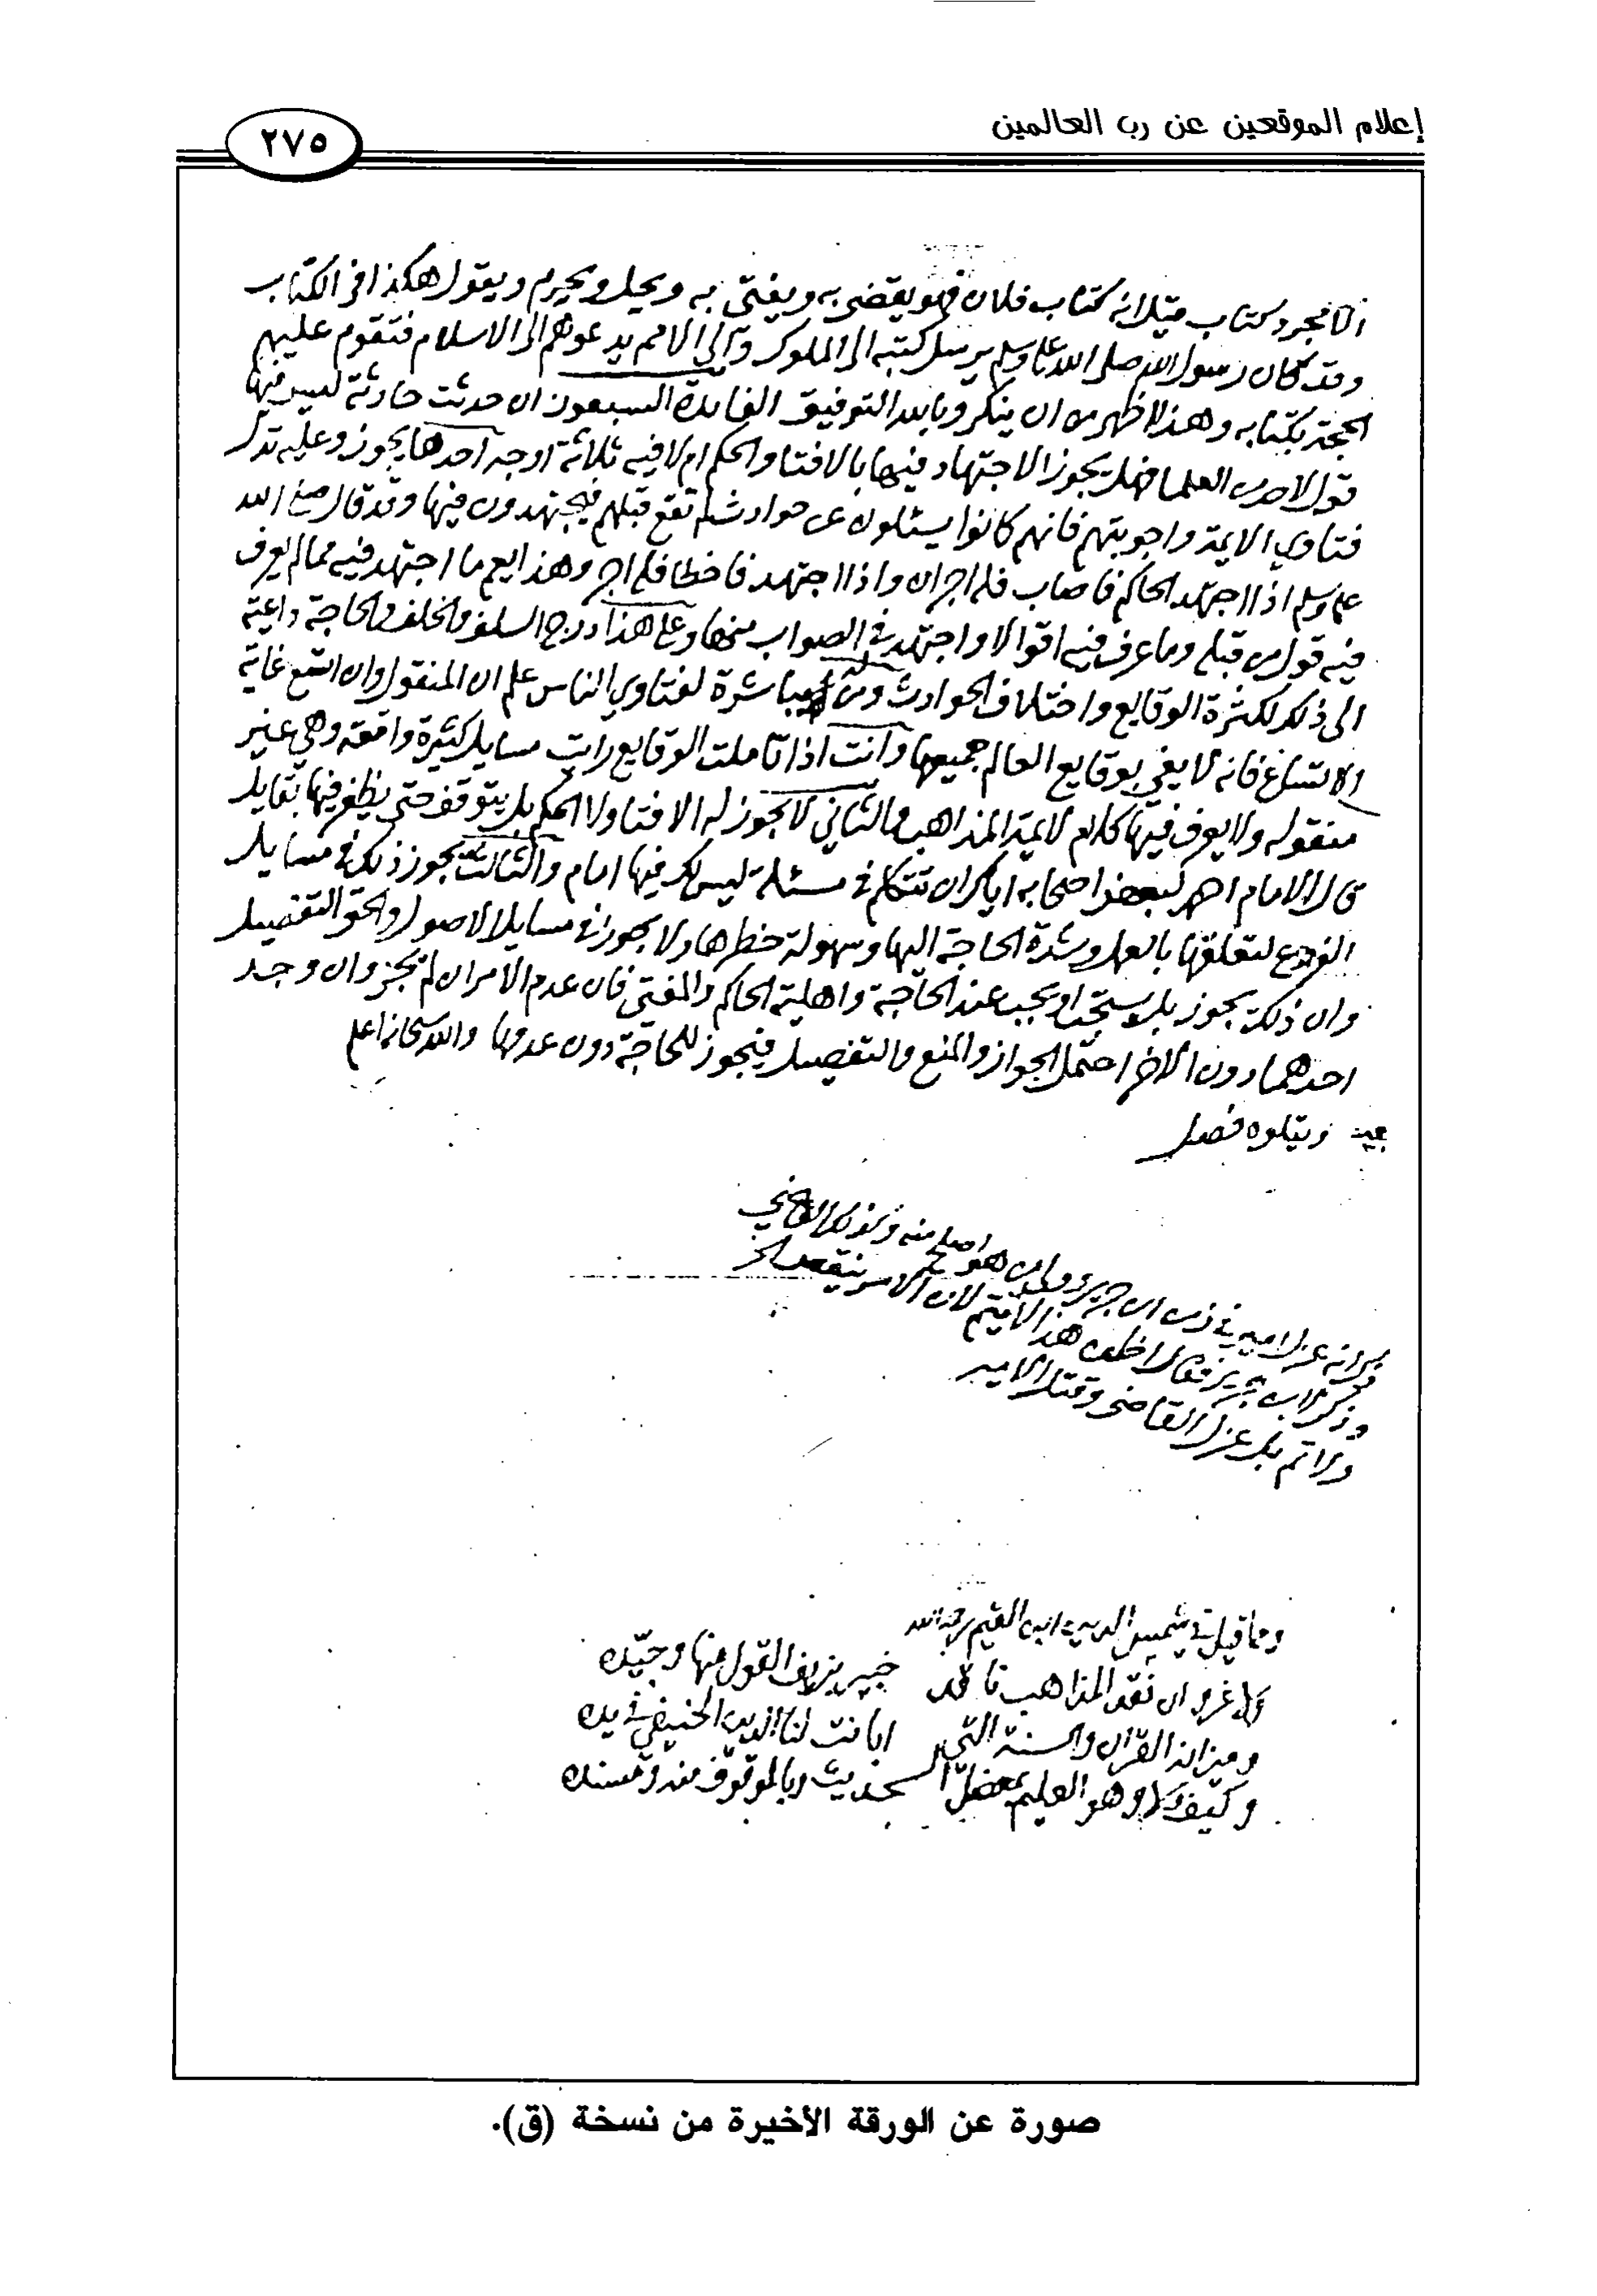 إعلام الموقعين عن رب العالمين
٢٧٥
الا مجرد كتاب قيل انه كتاب فلان فهو يقضي به ويفتي به ويحل ويحرم ويقول هكذا في الكتاب
وقد كان رسول الله صلى الله عليه وسلم يرسل كتبه الى الملوك والى الامم يدعوهم الى الاسلام فتقوم عليهم
الحجة بكتابه وهذا اظهر من ان ينكر وبالله التوفيق الفايدة السبعون ان حدثت حادثة ليس فيها
قول لاحد من العلما فهل يجوز الاجتهاد فيها بالافتا والحكم ام لا فيه ثلاثة اوجه احدها يجوز وعليه تدل
فتاوي الايمة واجوبتهم فانهم كانوا يسئلون عن حوادث لم تقع قبلهم فيجتهدون فيها وقد قال صلى الله
عليه وسلم اذا اجتهد الحاكم فاصاب فله اجران واذا اجتهد فاخطا فله اجر وهذا يعم ما اجتهد فيه مما لم يعرف
فيه قول من قبله وما عرف فيه اقوالا واجتهد في الصواب منها وعلى هذا درج السلف والخلف والحاجة داعية
الى ذلك لكثرة الوقايع واختلاف الحوادث ومن له مباشرة لفتاوي الناس علم ان المنقول وان اتسع غاية
الاتساع فانه لا يفي بوقايع العالم جميعها وانت اذا تاملت الوقايع رايت مسايل كثيرة واقعة وهي غير
منقولة ولا يعرف فيها كلام لايمة المذاهب والثاني لا يجوز له الافتا ولا الحكم بل يتوقف حتى يظفر فيها بقايل
قال الامام احمد لبعض اصحابه اياك ان تتكلم في مسئلة ليس لك فيها امام والثالث يجوز ذلك في مسايل
الفروع لتعلقها بالعمل وشدة الحاجة اليها وسهولة خطرها ولا يجوز في مسايل الاصول والحق التفصيل
وان ذلك يجوز بل يستحب او يجب عند الحاجة واهلية الحاكم والمفتي فان عدم الامران لم يجز وان وجد
احدهما دون الاخر احتمل الجواز والمنع والتفصيل فيجوز للحاجة دون عدمها والله سبحانه اعلم
ويتلوه فصل
هو اصلح منه وكذلك القاضي
عزل القاضي وقتل الامير
ومما قيل في شمس الدين ابن القيم رحمه الله
الا غرو ان نقد المذاهب ناقد خبير بزيف القول منها وجيده
وميزانه القرآن والسنة التي ابانت لنا الدين الحنيفي في يده
وكيف لا وهو العليم بمعضل الحديث وبالموقوف منه ومسنده
صورة عن الورقة الأخيرة من نسخة (ق).